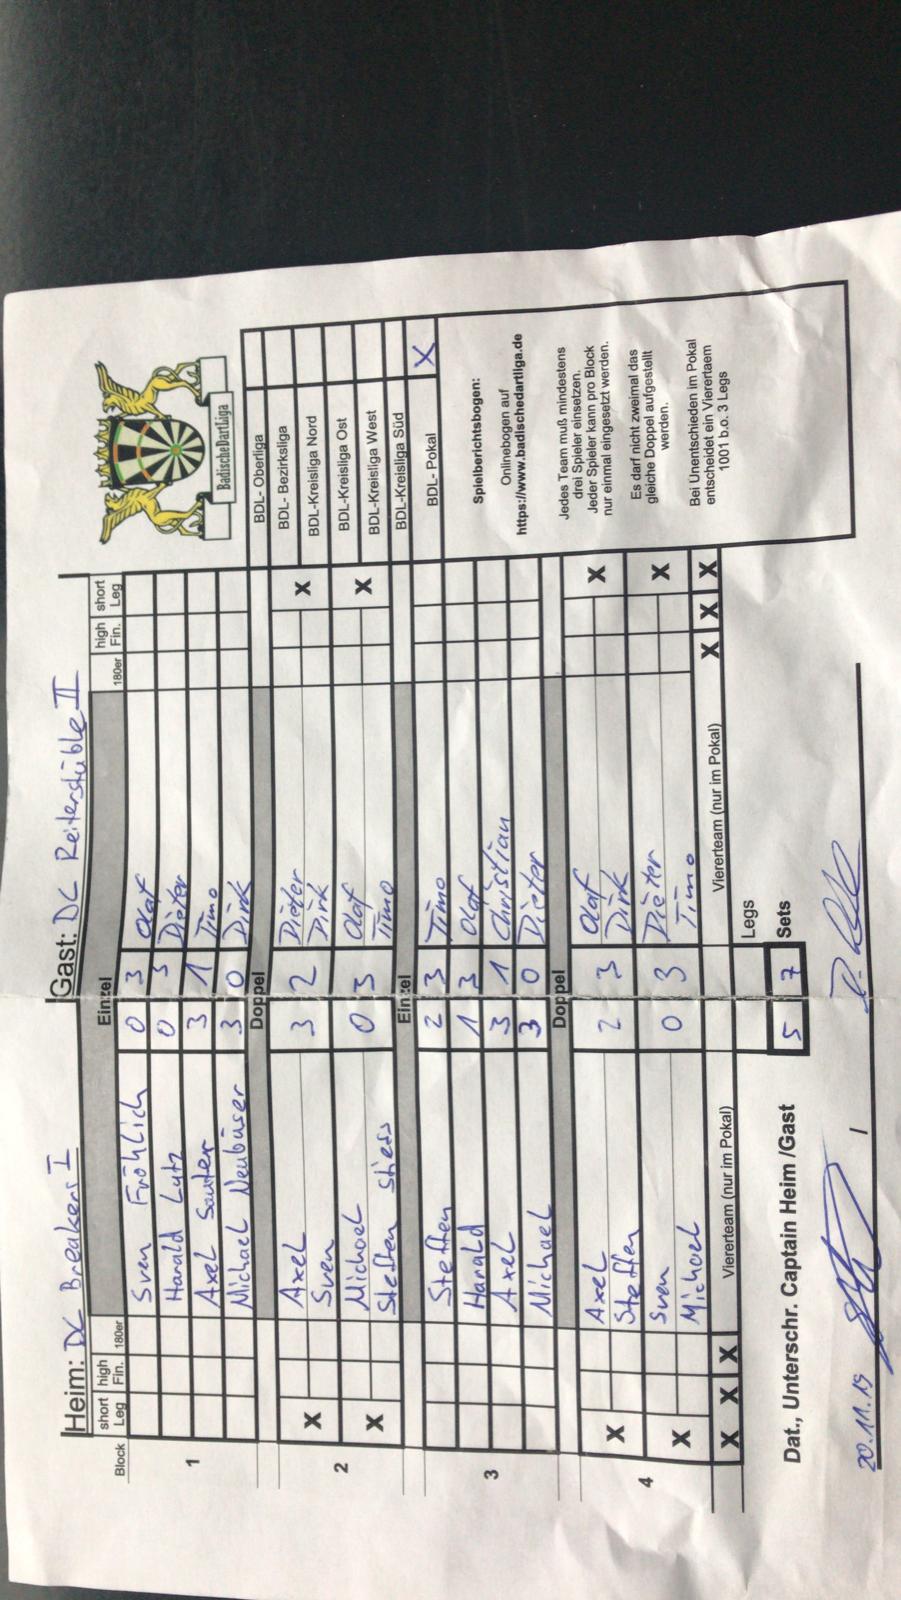 Heim: DC Breakers I Gast: DC Reiterstüble II
BadischeDartLiga
Block short Leg high Fin. 180er Einzel 180er high Fin. short Leg
1
Sven Fröhlich 0 3 Olaf
Harald Lutz 0 3 Dieter
Axel Sauter 3 1 Timo
Michael Neubüser 3 0 Dirk
Doppel
2
X Axel 3 2 Dieter X
Sven Dirk
X Michael 0 3 Olaf X
Steffen Stiess Timo
Einzel
3
Steffen 2 3 Timo
Harald 1 3 Olaf
Axel 3 1 Christian
Michael 3 0 Dieter
Doppel
4
X Axel 2 3 Olaf X
Steffen Dirk
X Sven 0 3 Dieter X
Michael Timo
X X X Viererteam (nur im Pokal) Viererteam (nur im Pokal) X X X
Legs
5 7 Sets
Dat., Unterschr. Captain Heim /Gast
20.11.19 /
BDL- Oberliga
BDL- Bezirksliga
BDL-Kreisliga Nord
BDL-Kreisliga Ost
BDL-Kreisliga West
BDL-Kreisliga Süd
BDL- Pokal X
Spielberichtsbogen:
Onlinebogen auf
https://www.badischedartliga.de
Jedes Team muß mindestens
drei Spieler einsetzen.
Jeder Spieler kann pro Block
nur einmal eingesetzt werden.
Es darf nicht zweimal das
gleiche Doppel aufgestellt
werden.
Bei Unentschieden im Pokal
entscheidet ein Vierertaem
1001 b.o. 3 Legs